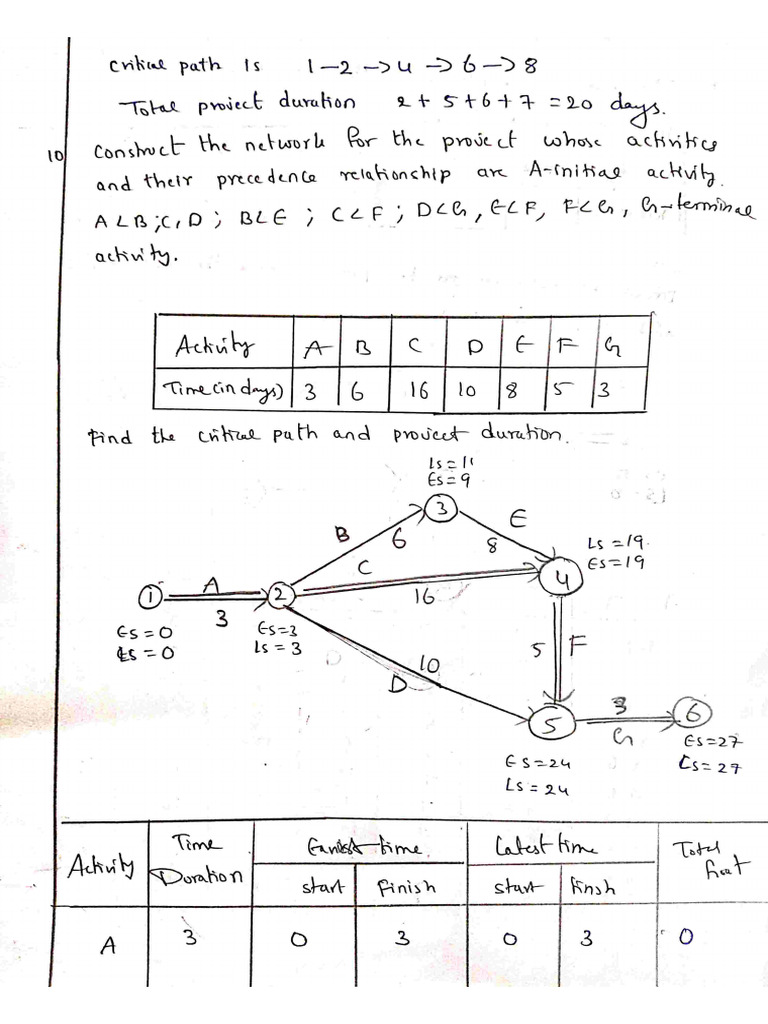 Critical path is 1-2 -> 4 -> 6 -> 8
Total proiect duration 2+5+6+7 = 20 days.
10 Construct the network for the proiect whose activities
and their precedence relationship are A-initial activity.
A<B;C,D; B<E; C<F; D<G, E<F, F<G, G-terminal
activity.
Activity A B C D E F G
Time(in days) 3 6 16 10 8 5 3
Find the critical path and proiect duration.
Ls = 11
Es = 9
3
B 6 E 8
Ls = 19
Es = 19
C 16
4
1 A 3 2
Es = 0
Ls = 0
Es = 3
Ls = 3
10
D
5 F
5 3 G 6
Es = 24
Ls = 24
Es = 27
Ls = 27
Activity Time Duration Earliest time Latest time Total float
start Finish start Finish
A 3 0 3 0 3 0